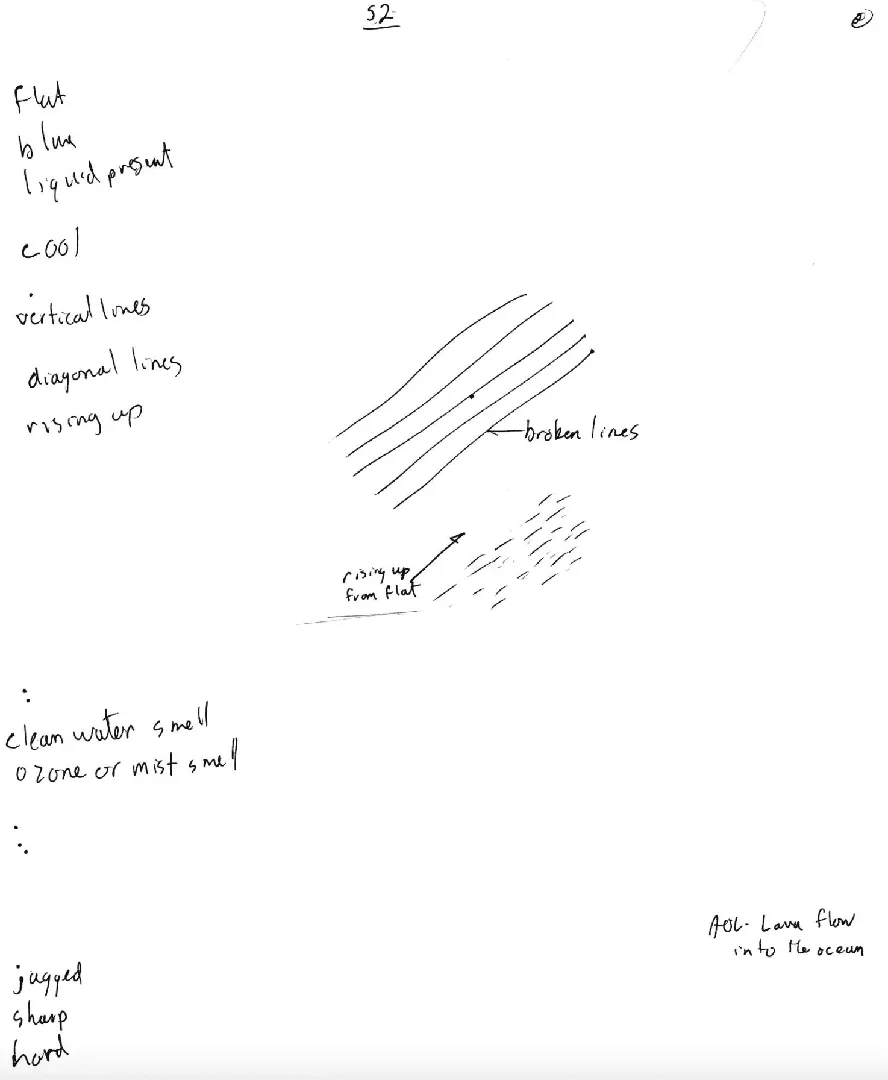 S2
2
flat
blue
liquid present
cool
vertical lines
diagonal lines
rising up
broken lines
rising up
from flat
clean water smell
ozone or mist smell
AOL- Lava flow
into the ocean
jagged
sharp
hard